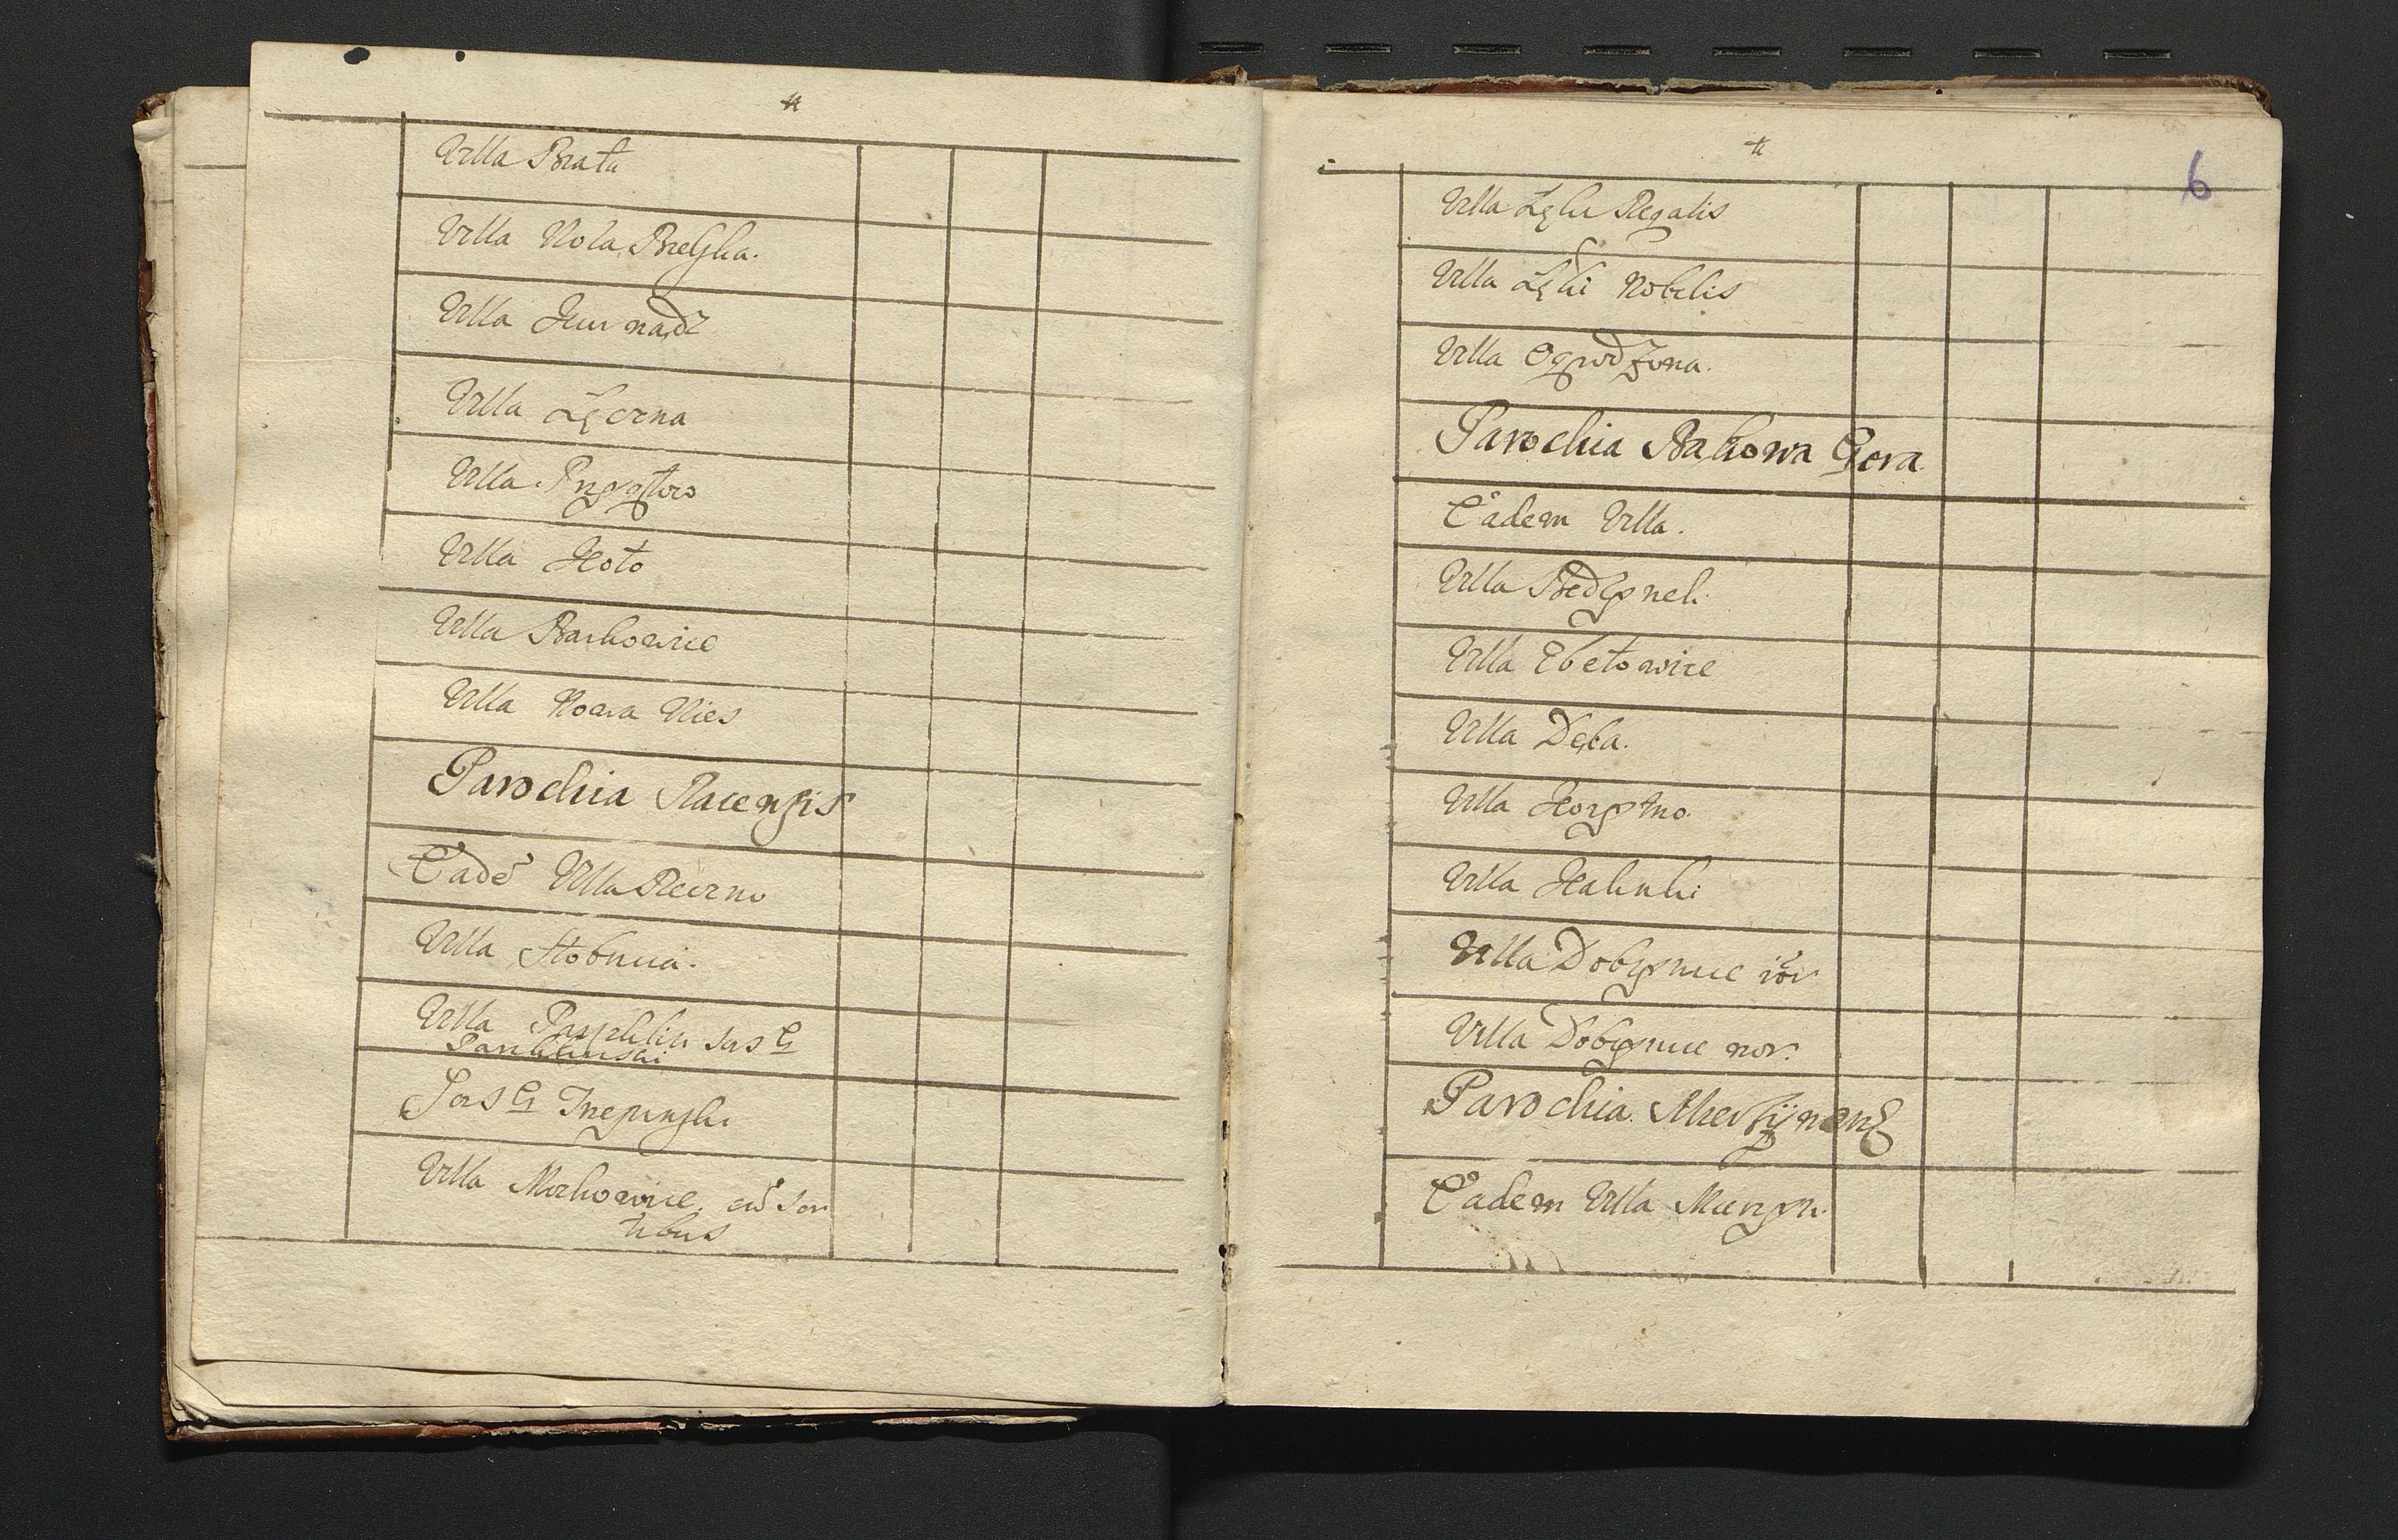 Villa Brata
Villa Wola Bielska.
Villa Kurnadz
Villa Łęczna
Villa Przygłow
Villa Koło
Villa Barkowice
Villa Nowa Wies
Parochia Racensis
Eadē Villa Reczno
Villa Stobnica.
Villa Paskrzin sors G
Sors G Trepinski
Villa Mozkowice, cū sor
tibus
6
Villa Łęki Regalis
Villa Łęki Nobilis
Villa Ogrodzona.
Parochia Bąkowa Gora
Eadem Villa.
Villa Bedzyn
Villa Zbełowice
Villa Dęba.
Villa Korytno
Villa Kalinki
Villa Dobrenice
Villa Dobrenice nov.
Parochia Mierzynens
Eadem Villa Mierzyn.